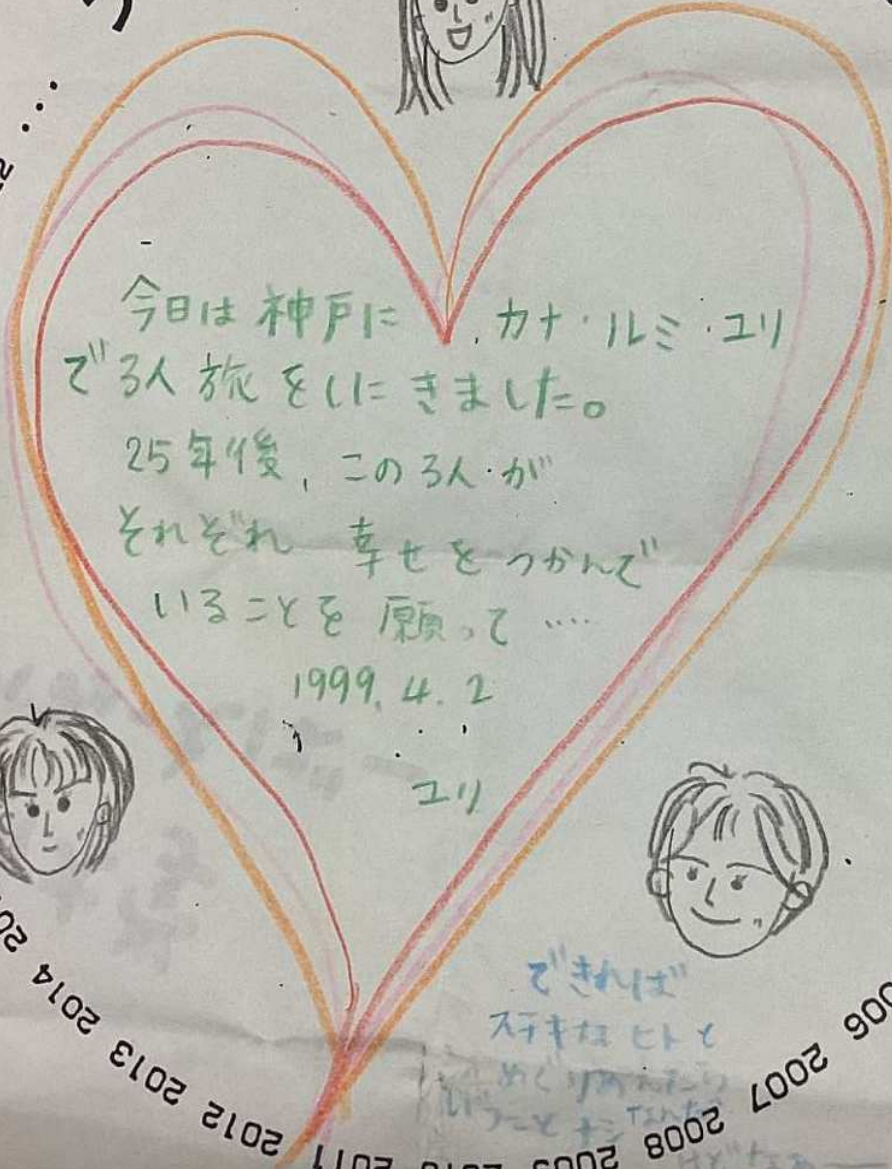 今日は神戸に、カナ・ルミ・ユリ
で3人旅をしにきました。
25年後、この3人が
それぞれ幸せをつかんで
いることを願って....
1999.4.2
ユリ
できれば
ステキなヒトと
めぐりあえたら
いうことナシ
2006 2007 2008 2009 2010 2011 2012 2013 2014